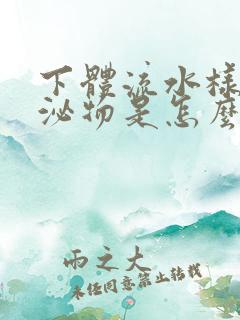 下體流水樣
泌物是怎麼
雨之大
未任同意禁止转载